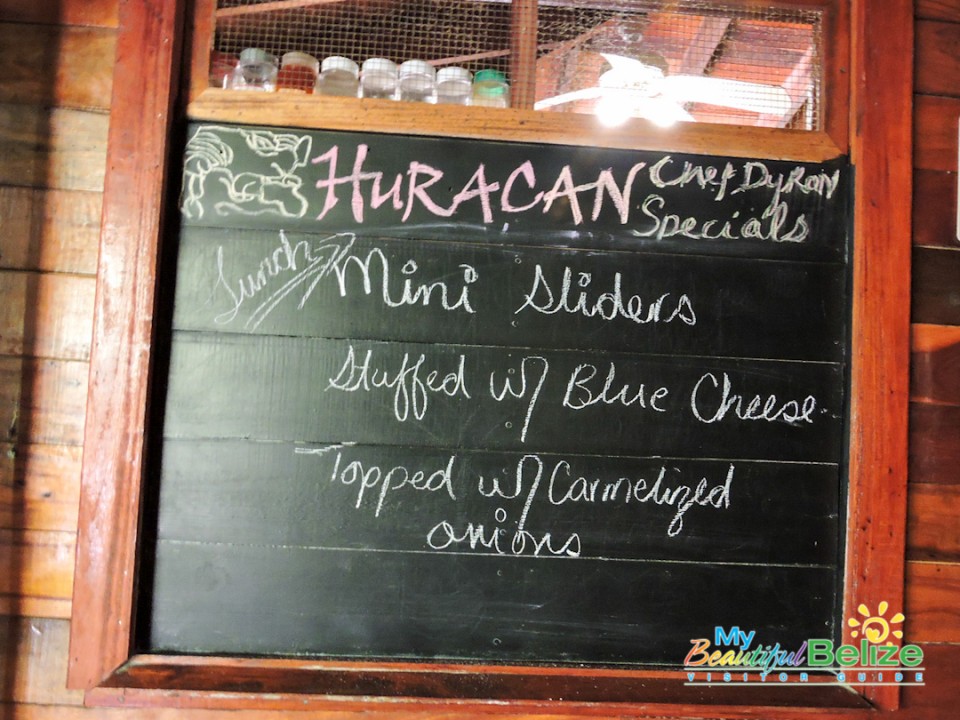 HURACAN Chef Dyron
Specials
Lunch Mini Sliders
Stuffed w/ Blue Cheese
Topped w/ Carmelized
onions
My
Beautiful Belize
VISITOR GUIDE